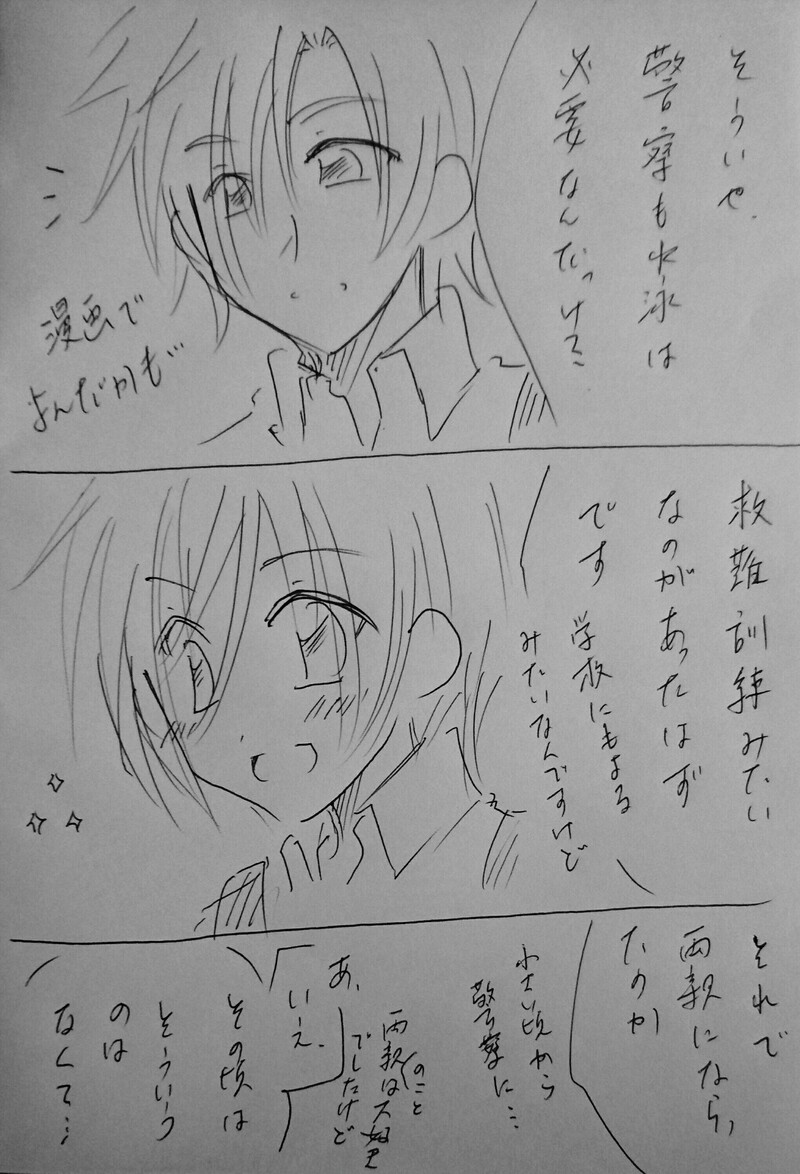 そういや、
警察も水泳は
必要なんだっけ…
漫画で
よんだかも
救難訓練みたい
なのがあったはず
です
学校にもよる
みたいなんですけど
それで
両親になら
たのか
小さい頃から
警察に…
あ、
いえ、
両親のことは大好き
でしたけど
その頃は
そういう
のは
なくて…